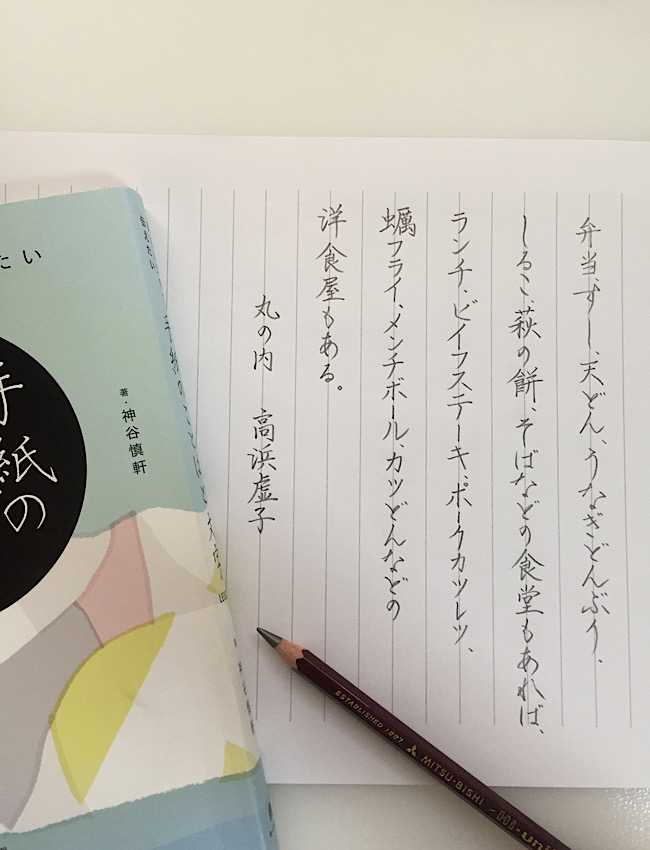 弁当、すし、天どん、うなぎどんぶり、
しるこ、萩の餅、そばなどの食堂もあれば、
ランチ、ビイフステーキ、ポークカツレツ、
蠣フライ、メンチボール、カツどんなどの
洋食屋もある。
丸の内　高浜虚子
たい
手紙の
著・神谷慎軒
ESTABLISHED 1887 MITSU-BISHI
uni